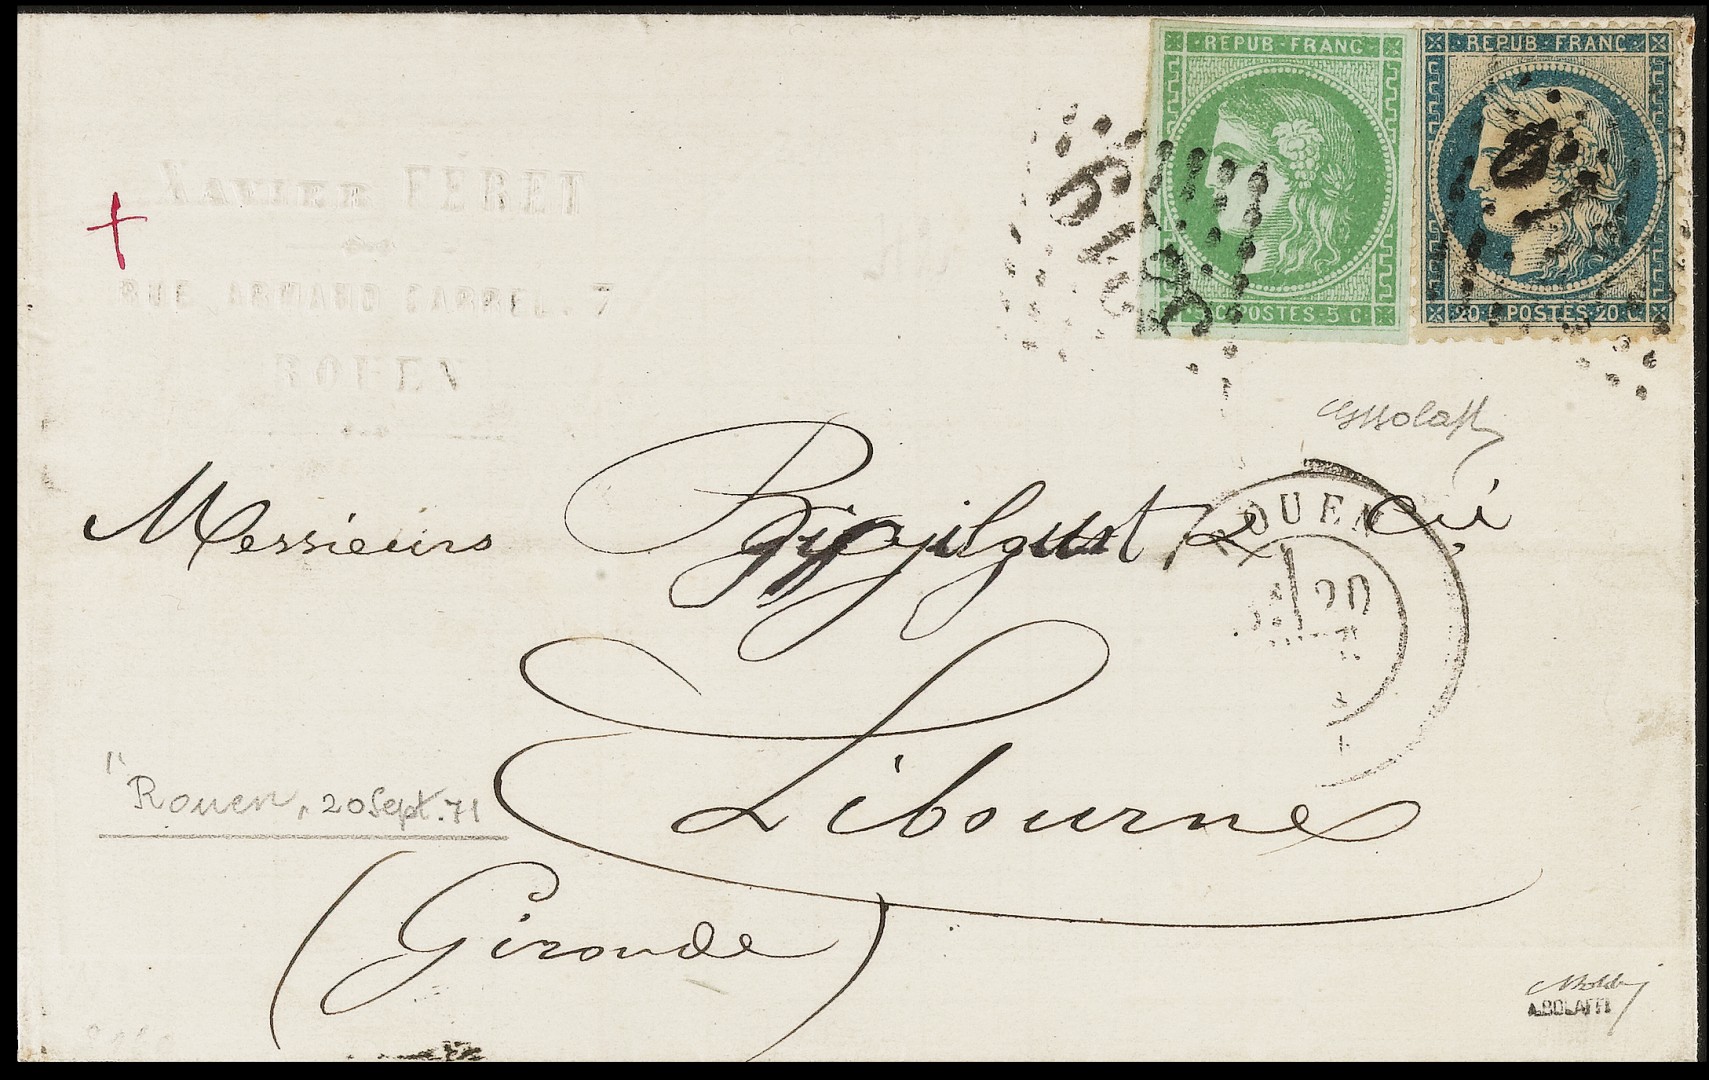 REPUB · FRANC
5 C · POSTES · 5 C ·
REPUB · FRANC
20 C POSTES · 20 C
XAVIER FÉRET
RUE ARMAND CARREL. 7
ROUEN
ROUEN
20
Messieurs
Libourne
(Gironde)
Rouen, 20 Sept. 71
A.BOLAFFI